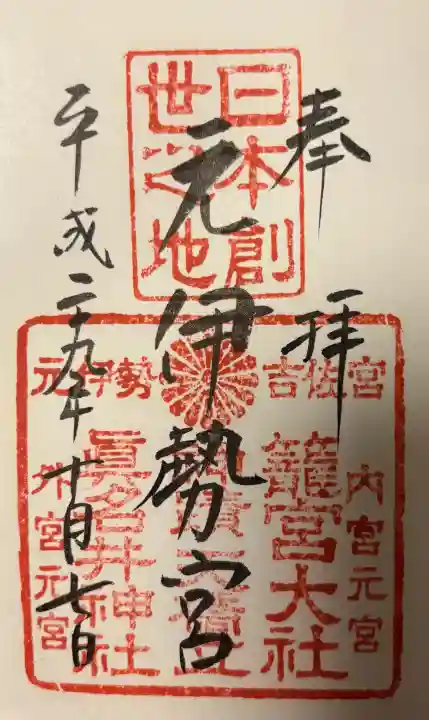 奉拝
日本創
世之地
元伊勢宮
吉佐宮
元伊勢
内宮元宮
籠宮大社
眞名井神社
外宮元宮
平成二十九年十月七日